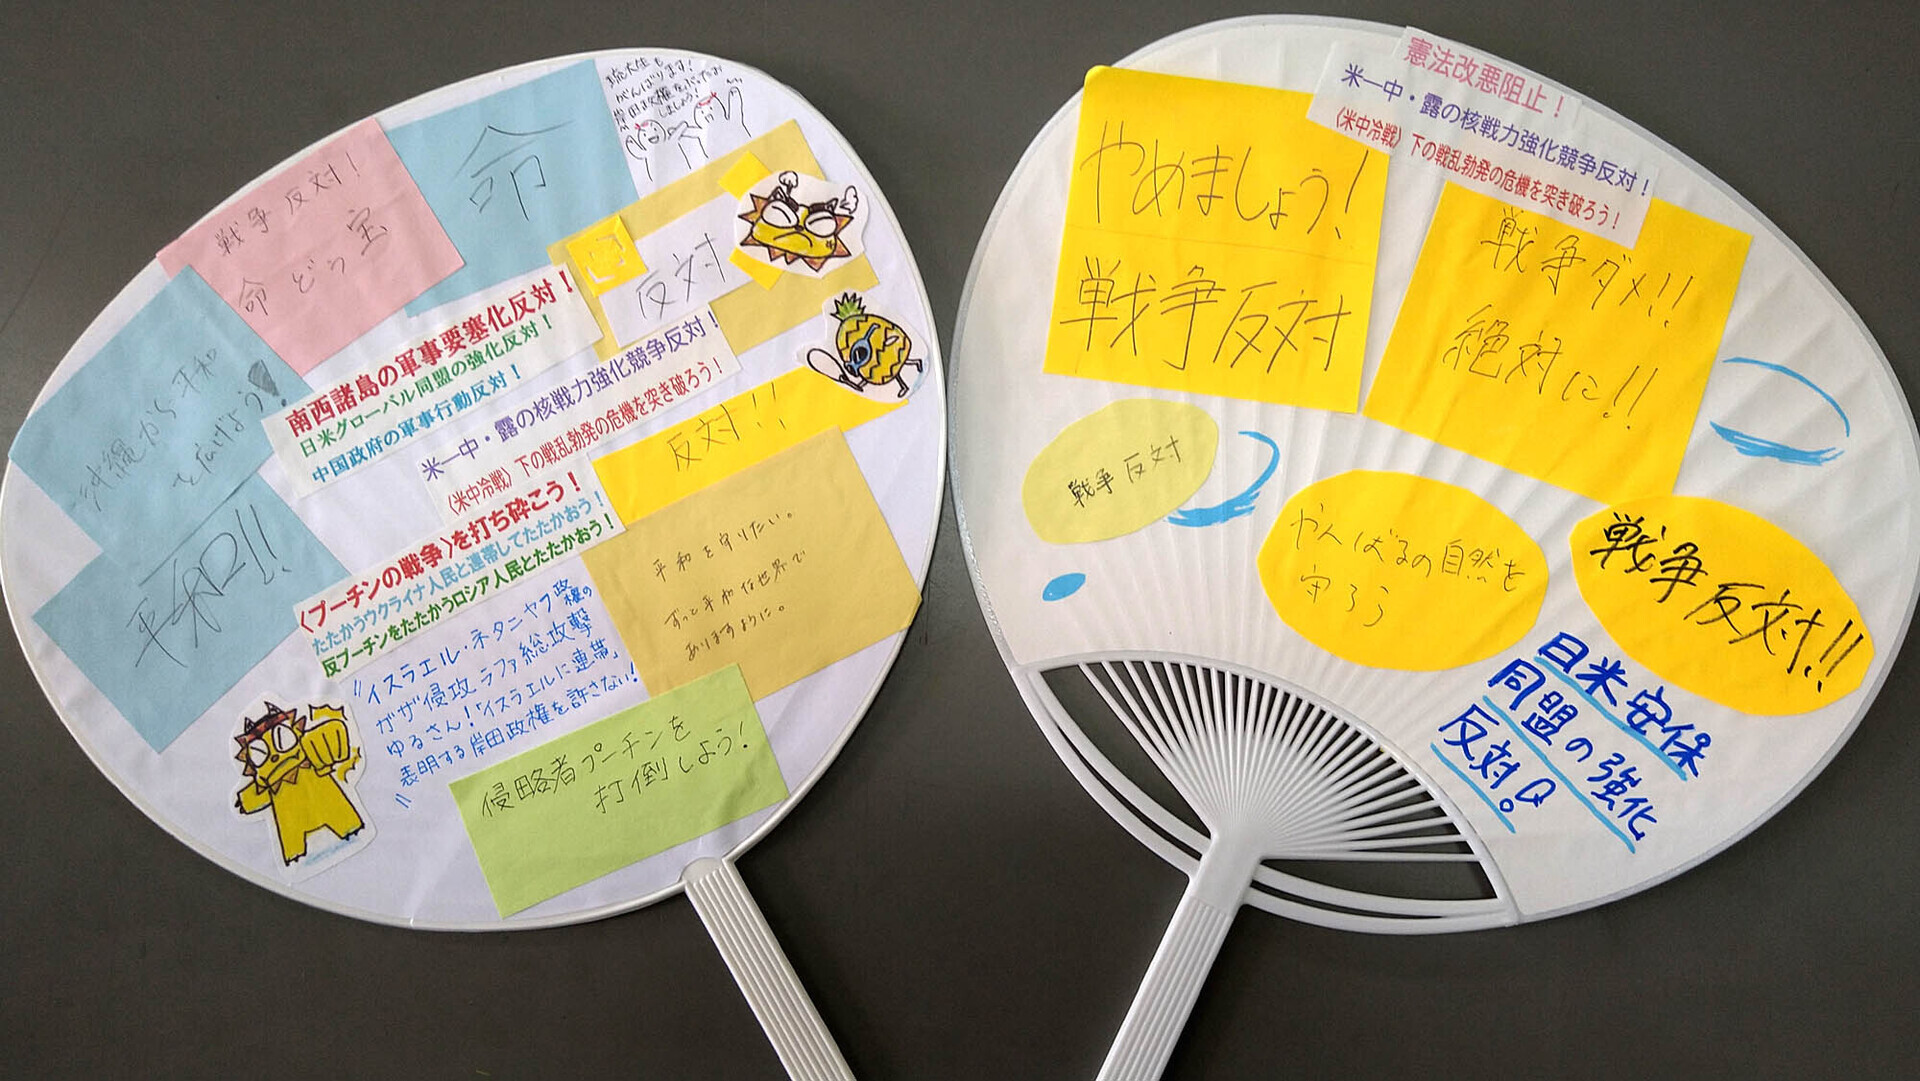 琉大生も
がんばります!
岸田政権をぶったお
しましょう!
命
戦争反対!
命どぅ宝
反対
沖縄から平和
を広げよう!
平和!!
南西諸島の軍事要塞化反対!
日米グローバル同盟の強化反対!
中国政府の軍事行動反対!
米ー中・露の核戦力強化競争反対!
〈米中冷戦〉下の戦乱勃発の危機を突き破ろう!
反対!!
〈プーチンの戦争〉を打ち砕こう!
たたかうウクライナ人民と連帯してたたかおう!
反プーチンをたたかうロシア人民とたたかおう!
平和を守りたい。
ずっと平和な世界で
ありますように。
〃イスラエル・ネタニヤフ政権の
ガザ侵攻ラファ総攻撃
ゆるさん!「イスラエルに連帯」
表明する岸田政権を許さない!
〃
侵略者プーチンを
打倒しよう!
憲法改悪阻止!
米ー中・露の核戦力強化競争反対!
〈米中冷戦〉下の戦乱勃発の危機を突き破ろう!
やめましょう!
戦争反対
戦争ダメ!!
絶対に!!
戦争反対
やんばるの自然を
守ろう
戦争反対!!
日米安保
同盟の強化
反対。